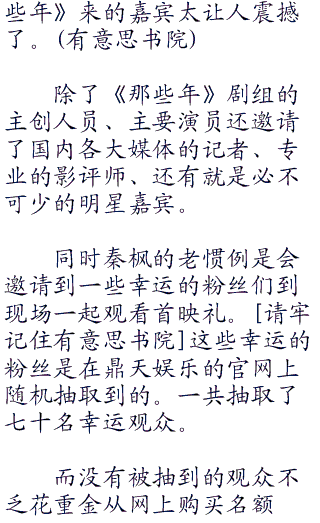 些年》来的嘉宾太让人震撼
了。(有意思书院)
除了《那些年》剧组的
主创人员、主要演员还邀请
了国内各大媒体的记者、专
业的影评师、还有就是必不
可少的明星嘉宾。
同时秦枫的老惯例是会
邀请到一些幸运的粉丝们到
现场一起观看首映礼。[请牢
记住有意思书院]这些幸运的
粉丝是在鼎天娱乐的官网上
随机抽取到的。一共抽取了
七十名幸运观众。
而没有被抽到的观众不
乏花重金从网上购买名额